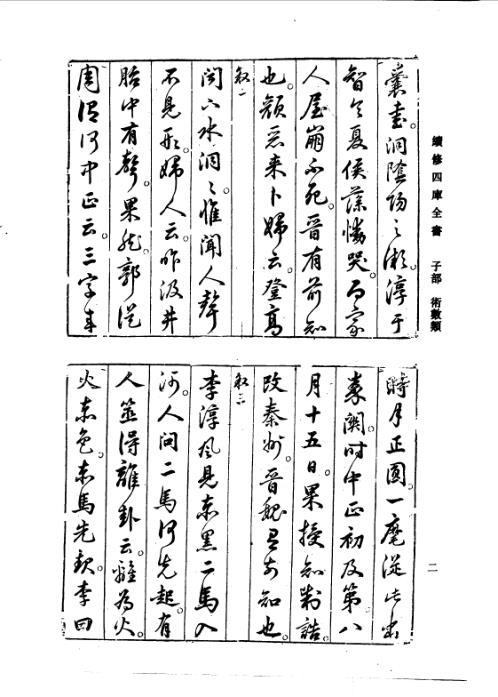 續修四庫全書　子部　術數類
洞陰陽之微。淳于
智令夏侯藻慟哭。而家
人屋崩不死。晉有前知
也。顏惡來卜婦云。登高
叙二
水洞々惟聞人聲
不見形。婦人云昨汲井
胎中有聲。果然。郭從
周謂何中正云。三字來
時月正圓。一麾從此出
秦關。時中正初及第。八
月十五日。果授知制誥。
改秦州。晉魏前知也。
叙三
李淳風見赤黑二馬入
河。人問二馬何先起。有
人筮得離卦云。離為火。
火赤色。赤馬先起。李曰
二